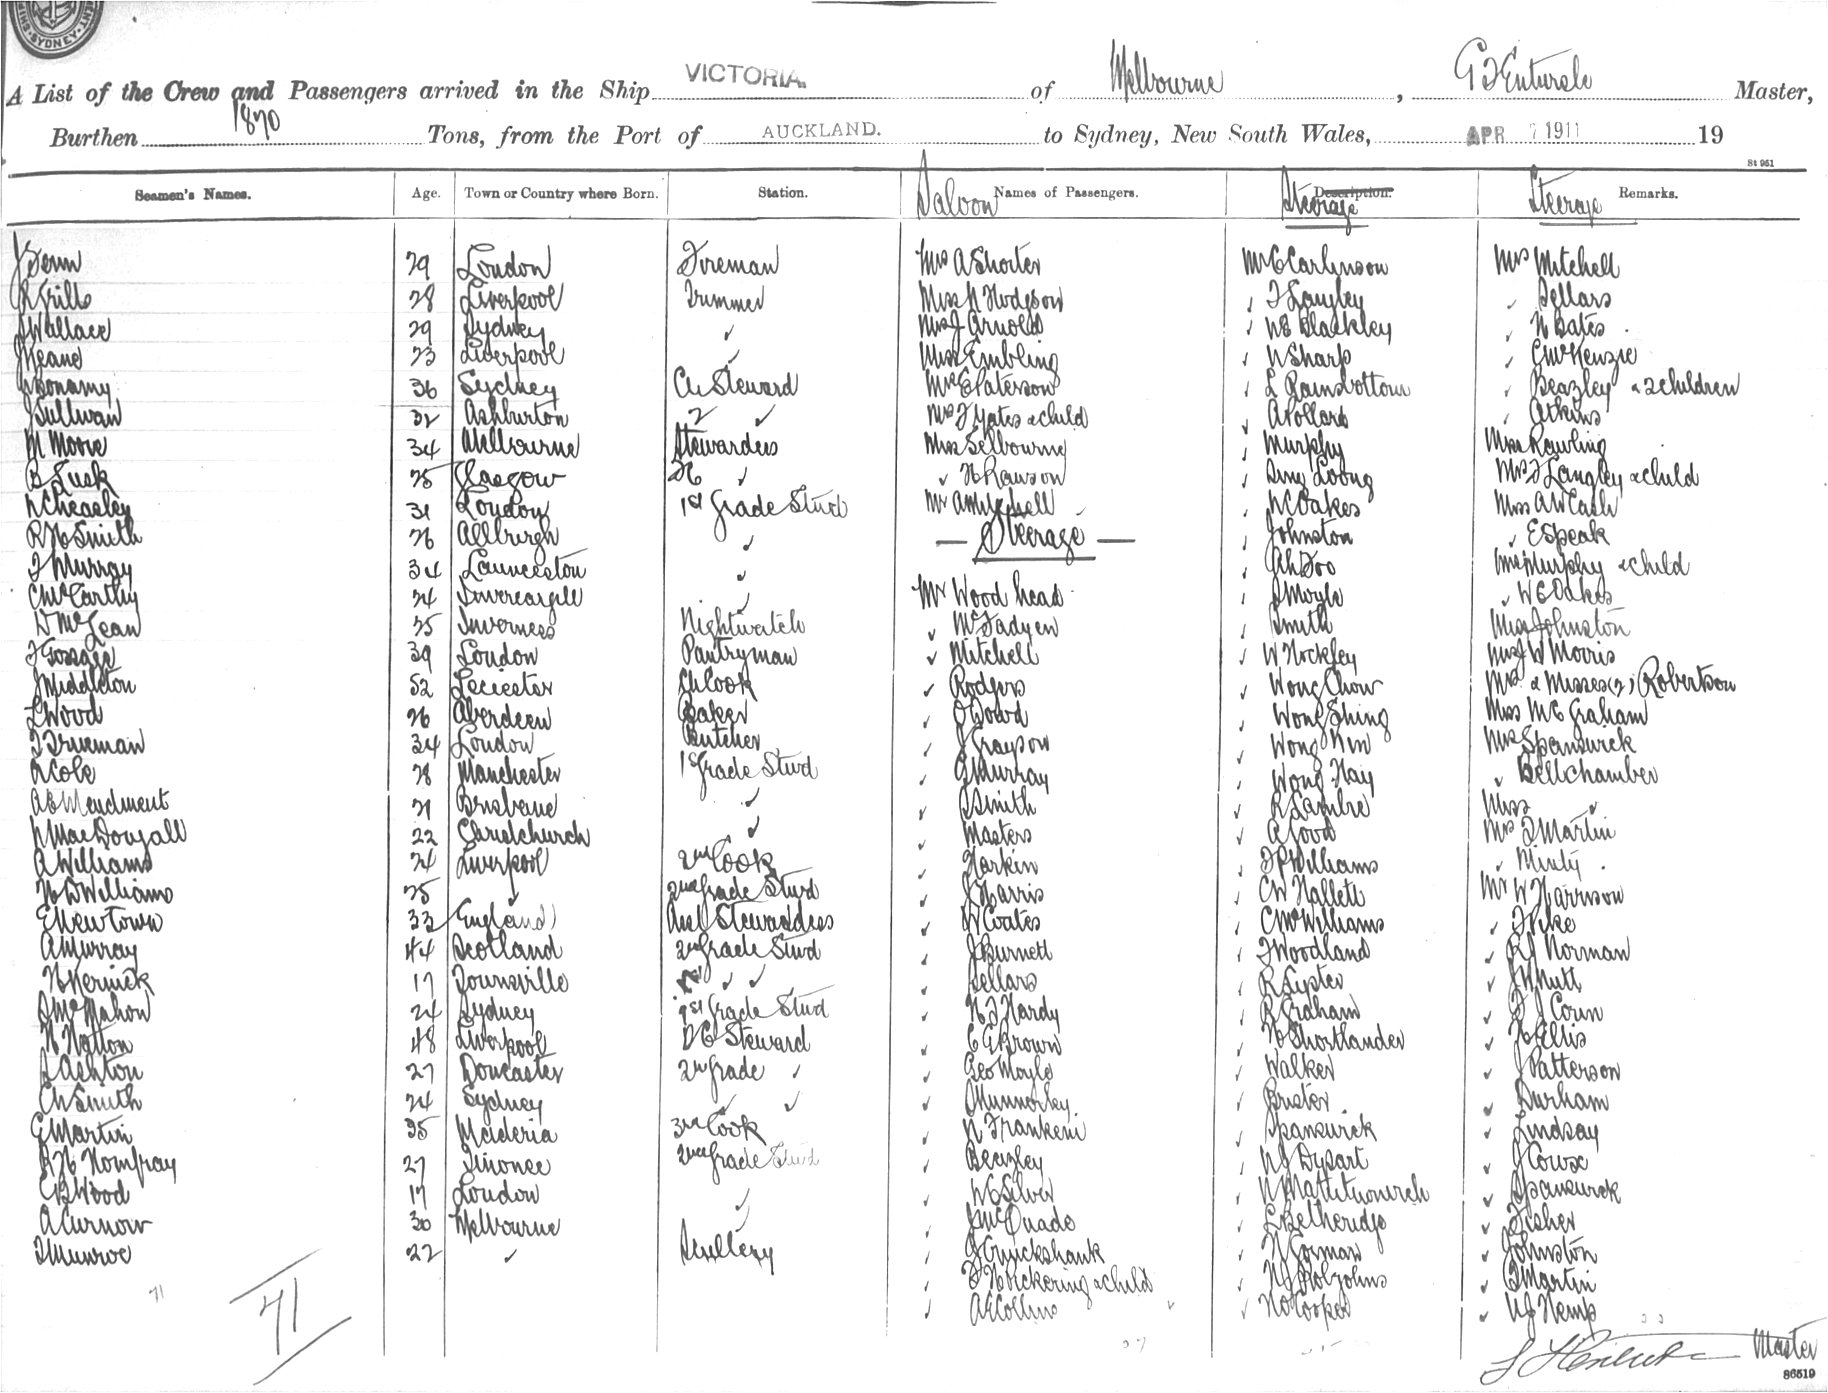 SYDNEY
VICTORIA.
A List of the Crew and Passengers arrived in the Ship of Melbourne, Master,
Burthen 1870 Tons, from the Port of AUCKLAND. to Sydney, New South Wales, APR 7 1911 19
St 951
Seamen's Names. Age. Town or Country where Born. Station. Saloon Names of Passengers. Description. Steerage Steerage Remarks.
29 London Fireman Mrs A Shorter Mr Mrs Mitchell
28 Liverpool Trimmer Miss Hodgson F Langley Sellars
Wallace 29 Sydney Mrs J Arnold Blackley N Bates
J Keane 23 Liverpool Miss Embling N Sharp C McKenzie
Bonamy 36 Sydney Ch Steward Mrs E Paterson L Ramsbottom Beazley & 2 children
J Sullivan 32 Ashburton 2 Mrs F Yates & child A Pollard Atkins
M Moore 34 Melbourne Stewardess Miss Selbourne Murphy Miss Rawling
B Lusk 25 Glasgow H Rawson Sing Loong Mrs F Langley & child
N Cheasley 31 London 1st Grade Stwd Mr A Mitchell N C Oakes Miss A W Cash
R H Smith 26 Steerage Johnston E Speak
F Murray 34 Launceston Ah Foo Mrs Murphy & child
C McCarthy 24 Mr Wood head Moyle W E Oakes
D McLean 25 Inverness Nightwatch McFadyen Smith Miss Johnston
F Gossage 39 London Pantryman Mitchell W Hockley Morris
J Middleton 52 Leciester Ch Cook Rodgers Wong Chow Mrs & Misses (2) Robertson
L Wood 26 Aberdeen Baker O Dowd Wong Shing Miss M E Graham
F Trueman 34 London Butcher J Grayson Wong Mrs Spanswick
R Cole 28 Manchester 1st Grade Stwd G Murray Wong Hay Bellchamber
A E Mendment 21 Brisbane Smith R Miss
N MacDougall 22 Christchurch Masters Mrs F Martin
A Williams 24 Liverpool 2nd Cook Harkin F P Williams Minty
H D Williams 25 2nd Grade Stwd J Harris C W Hallett Mr W Harrison
E Newtown 33 England Stewardess W Coates C McWilliams F Pike
A Murray 44 Scotland 2nd Grade Stwd J Burnett F Woodland R J Norman
17 Townsville Sellars R J H Nutt
McMahon 24 Sydney 1st Grade Stwd H F Hardy R Graham F J Corin
H Hotton 48 Liverpool Steward E G Brown H Shortlander H Ellis
Ashton 27 Doncaster 2nd Grade Geo Moyle Walker J Patterson
C W Smith 24 Sydney Munnerley Brister Durham
G Martin 35 Maderia 3rd Cook N Frankeni Spanswick Lindsay
R H Homfray 27 2nd Grade Stwd Beazley N J Dysart
E B Wood 17 London W C Silver Spanswick
A Curnow 30 Melbourne J McQuade L Betheridge Fisher
F Munroe 22 Scullery G Cruickshank N Gorman Johnston
F H Pickering & child Martin
71 A E Collins Cooper N J Kemp
71
Master
86519